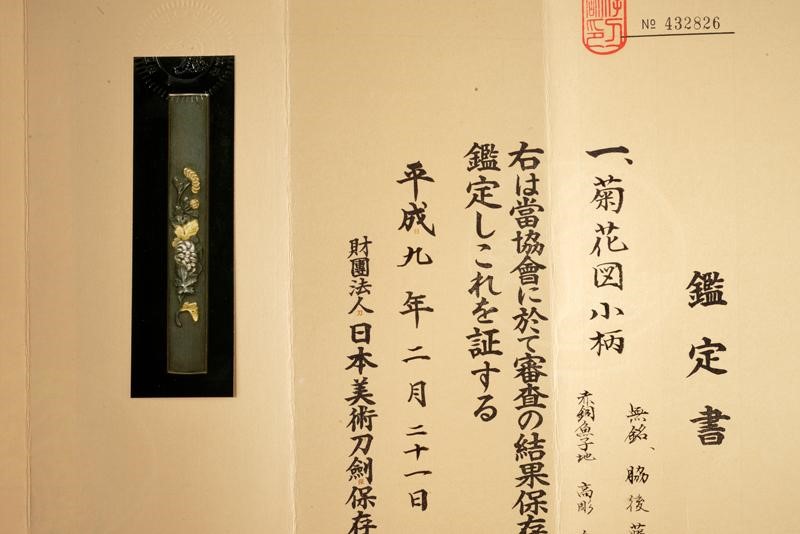 № 432826
鑑定書
無銘、脇後
一、菊花図小柄
赤銅魚子地 高彫
右は當協會に於て審査の結果保存
鑑定しこれを証する
平成九年二月二十一日
財團法人日本美術刀劍保存